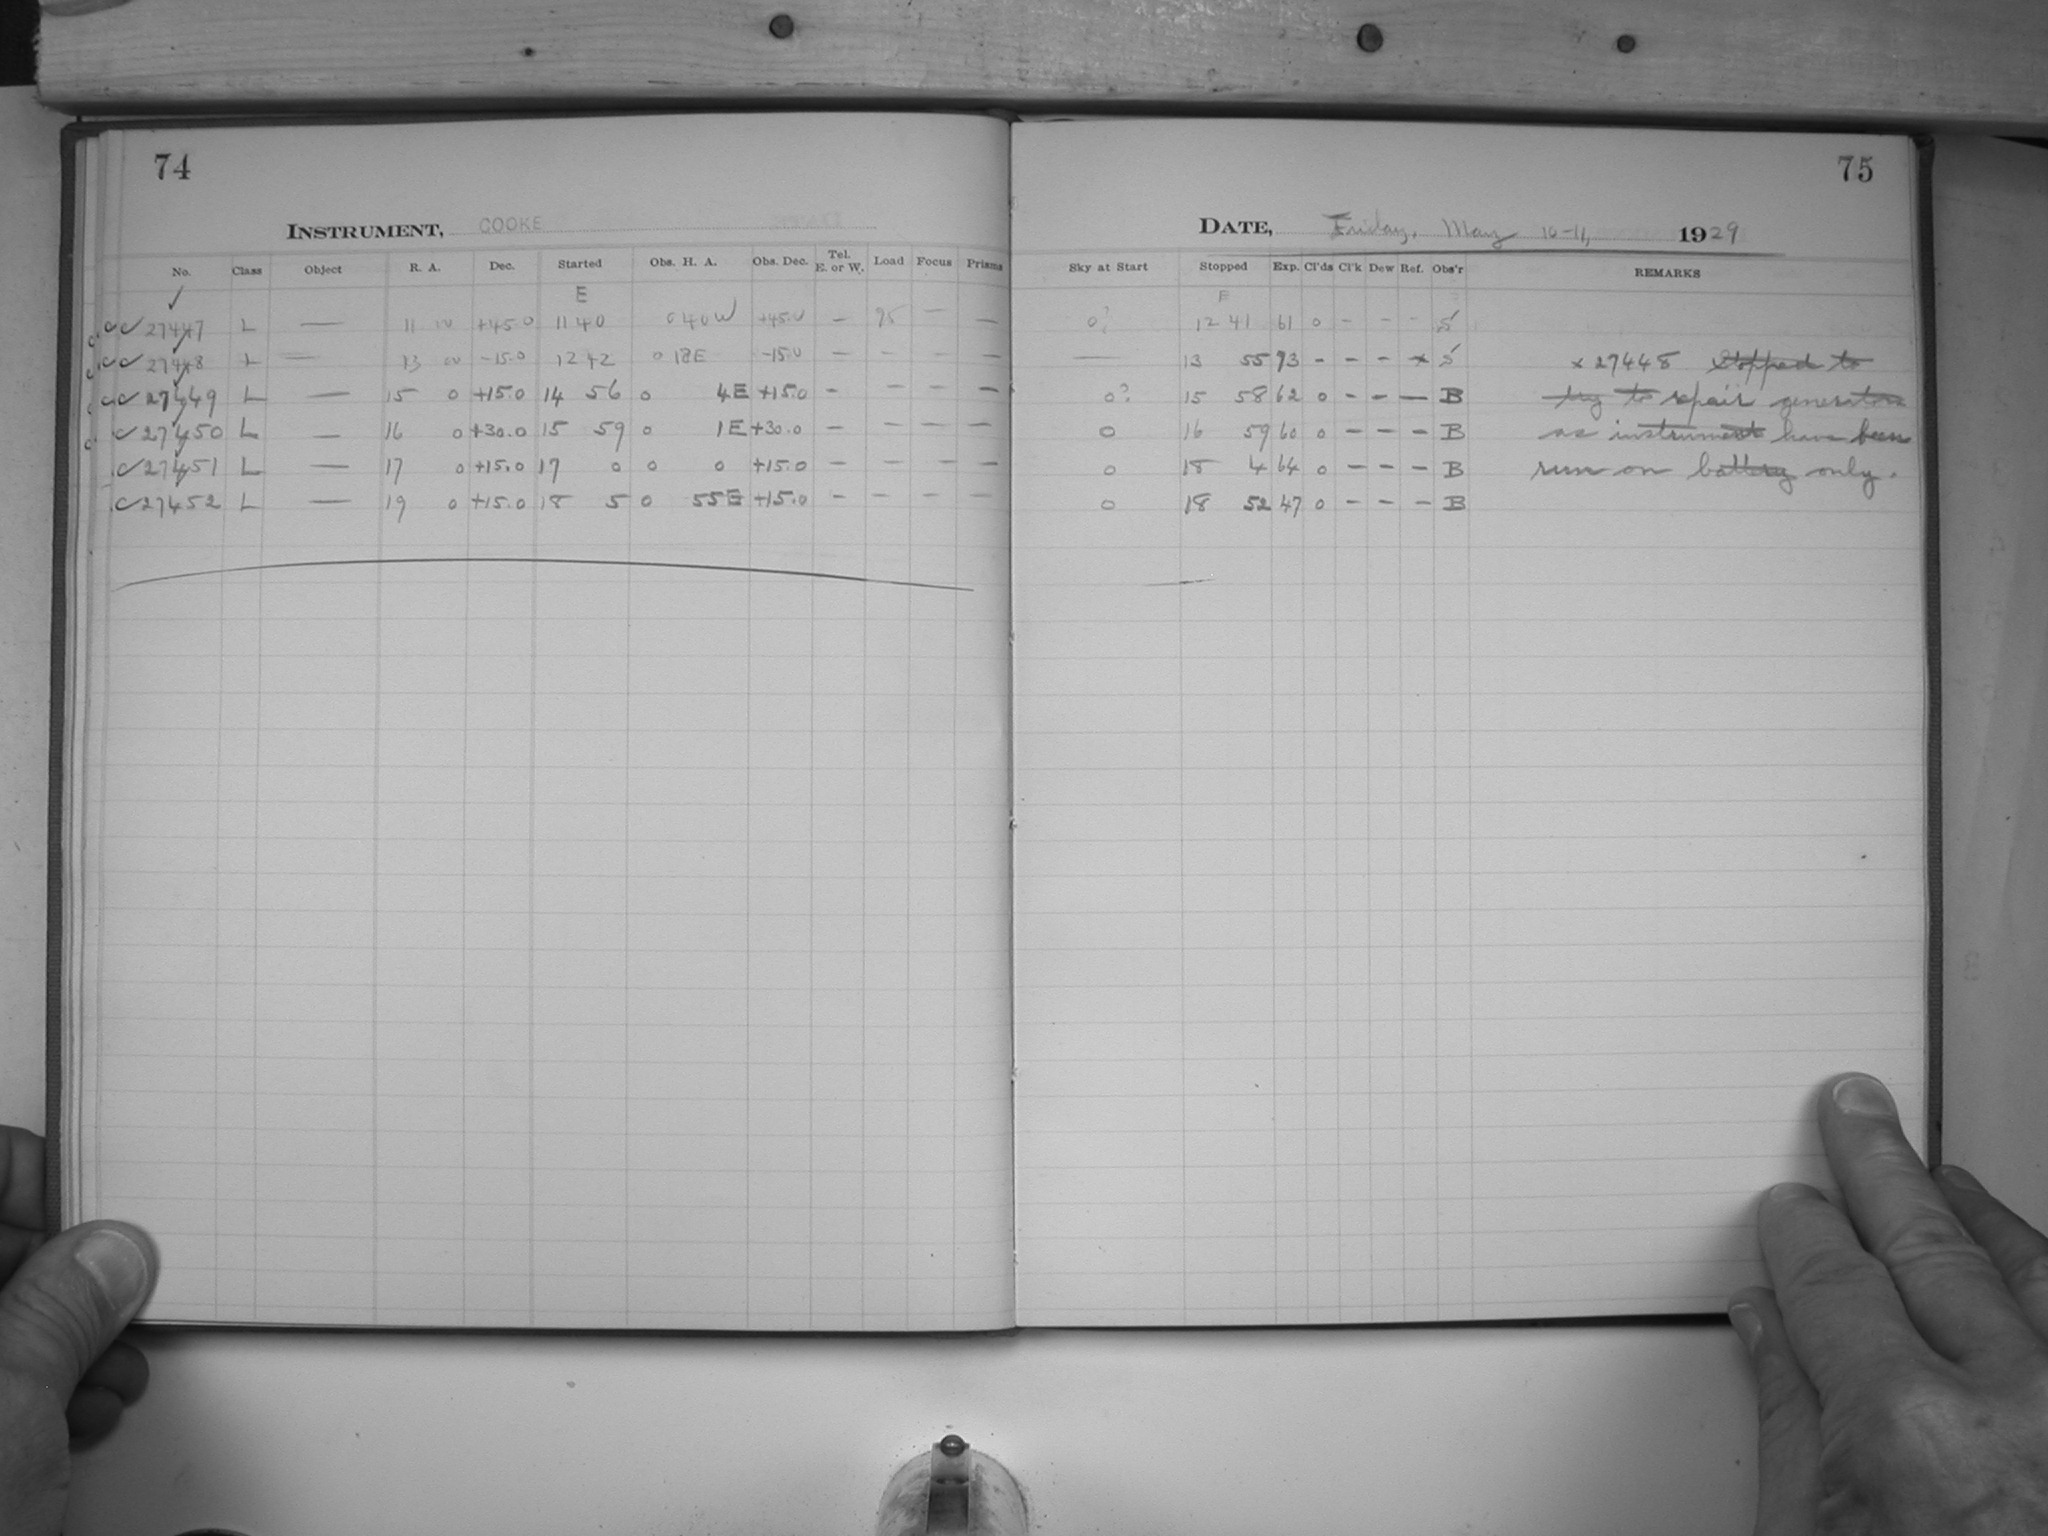 74
INSTRUMENT, COOKE
No. Class Object R. A. Dec. Started Obs. H. A. Obs. Dec. Tel. E. or W. Load Focus Prisms
✓ E
✓ 27447 L — 11 00 +45.0 11 40 0 40 W +45.0 — 95 — —
✓ 27448 L — 13 00 -15.0 12 42 0 18 E -15.0 — — — —
✓ 27449 L — 15 0 +15.0 14 56 0 4 E +15.0 — — — —
✓ 27450 L — 16 0 +30.0 15 59 0 1 E +30.0 — — — —
✓ 27451 L — 17 0 +15.0 17 0 0 0 +15.0 — — — —
✓ 27452 L — 19 0 +15.0 18 5 0 55 E +15.0 — — — —
75
DATE, Friday, May 10-11, 1929
Sky at Start Stopped Exp. Cl'ds Cl'k Dew Ref. Obs'r REMARKS
E
0? 12 41 61 0 - - - S
— 13 55 73 - - - x S x 27448 Stopped to
0? 15 58 62 0 - - — B try to repair generator
0 16 59 60 0 - - - B as instrument have been
0 18 4 64 0 - - - B run on battery only.
0 18 52 47 0 - - - B